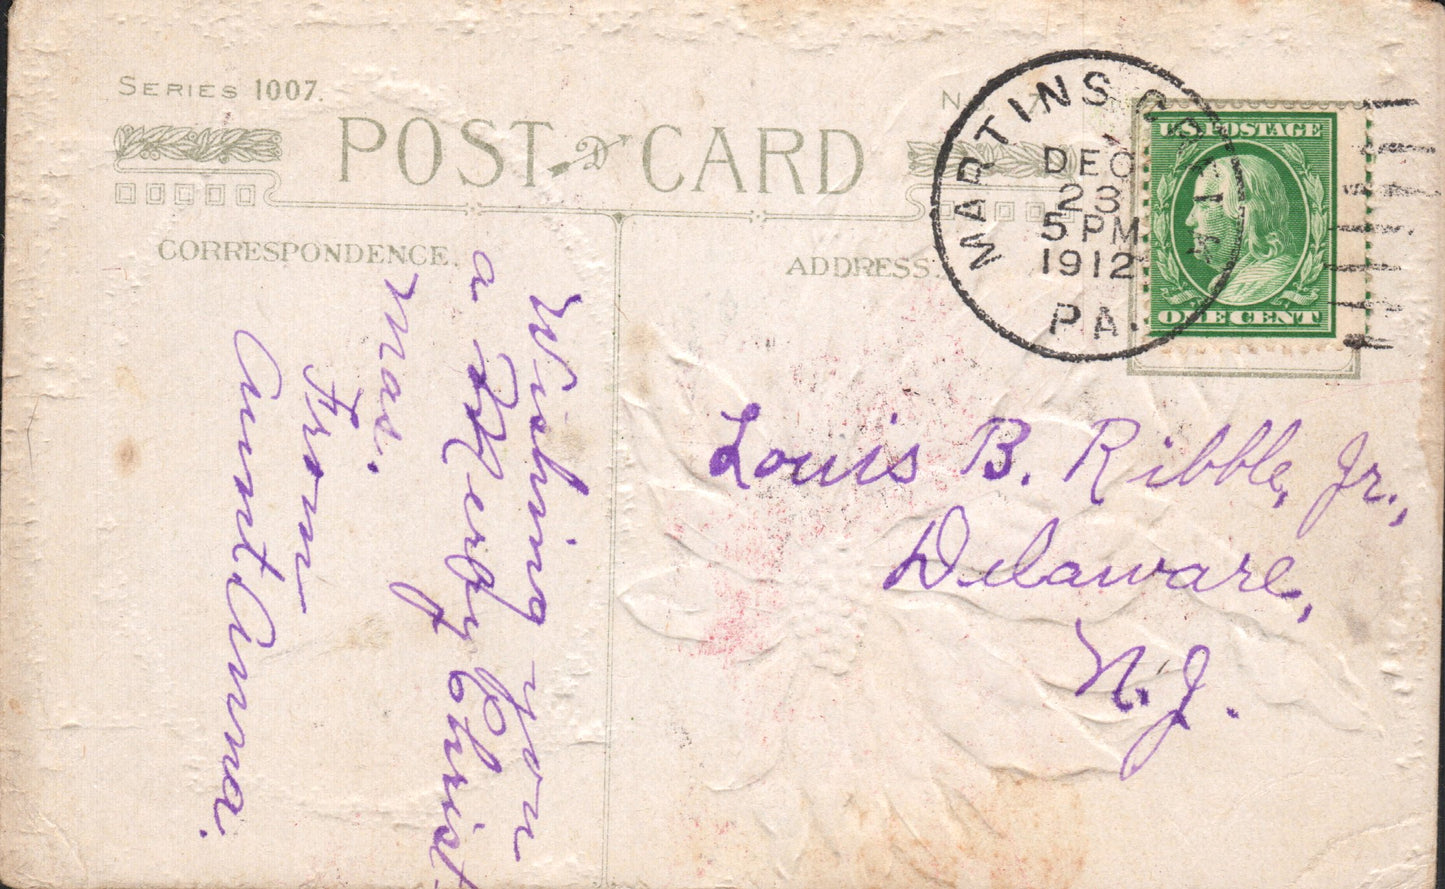 SERIES 1007.
POST CARD
CORRESPONDENCE.
ADDRESS.
MARTINS CREEK
DEC
23
5 PM
1912
PA.
U.S. POSTAGE
ONE CENT
Wishing you
a Merry Christ-
mas.
From
Aunt Anna.
Louis B. Ribble, Jr.,
Delaware,
N.J.